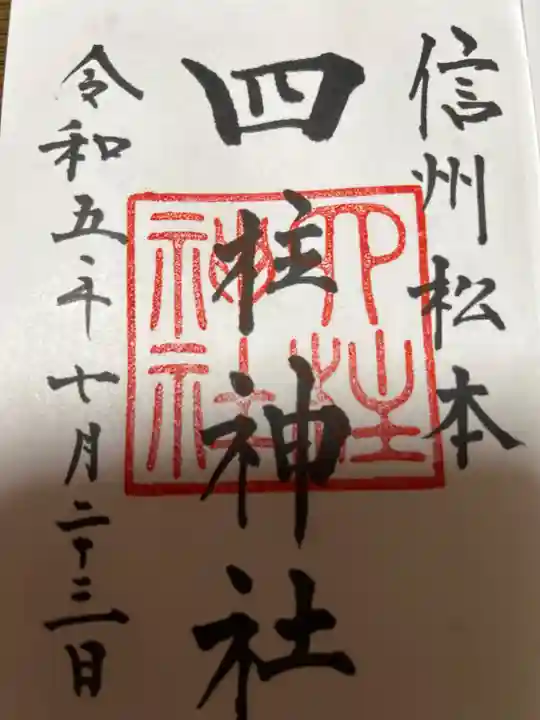 信州松本
四柱神社
四柱神社
令和五年十月二十三日